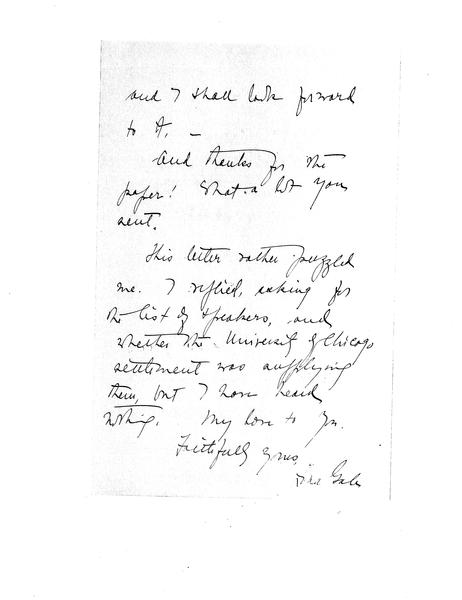 and I shall look forward
to it. —
And thanks for the
paper! What a lot you
sent.
This letter rather puzzled
me. I replied, asking for
the list of speakers, and
whether the University of Chicago
settlement was supplying
them, but I have heard
nothing. My love to you.
Faithfully yours,
Gale